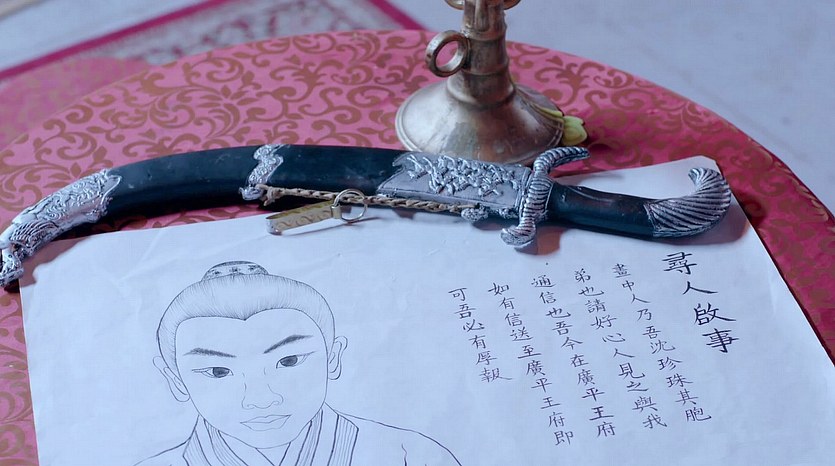 尋人啟事
畫中人乃吾沈珍珠其胞
弟也請好心人見之與我
通信也吾今在廣平王府
如有信送至廣平王府即
可吾必有厚報